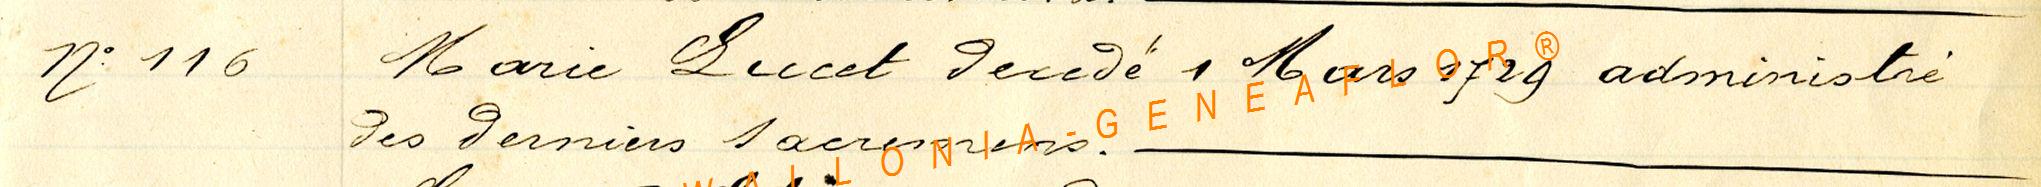 N° 116 Marie Lucet decedé 1 Mars 1729 administré
des derniers sacremens.
WALLONIA-GENEAFLOR®